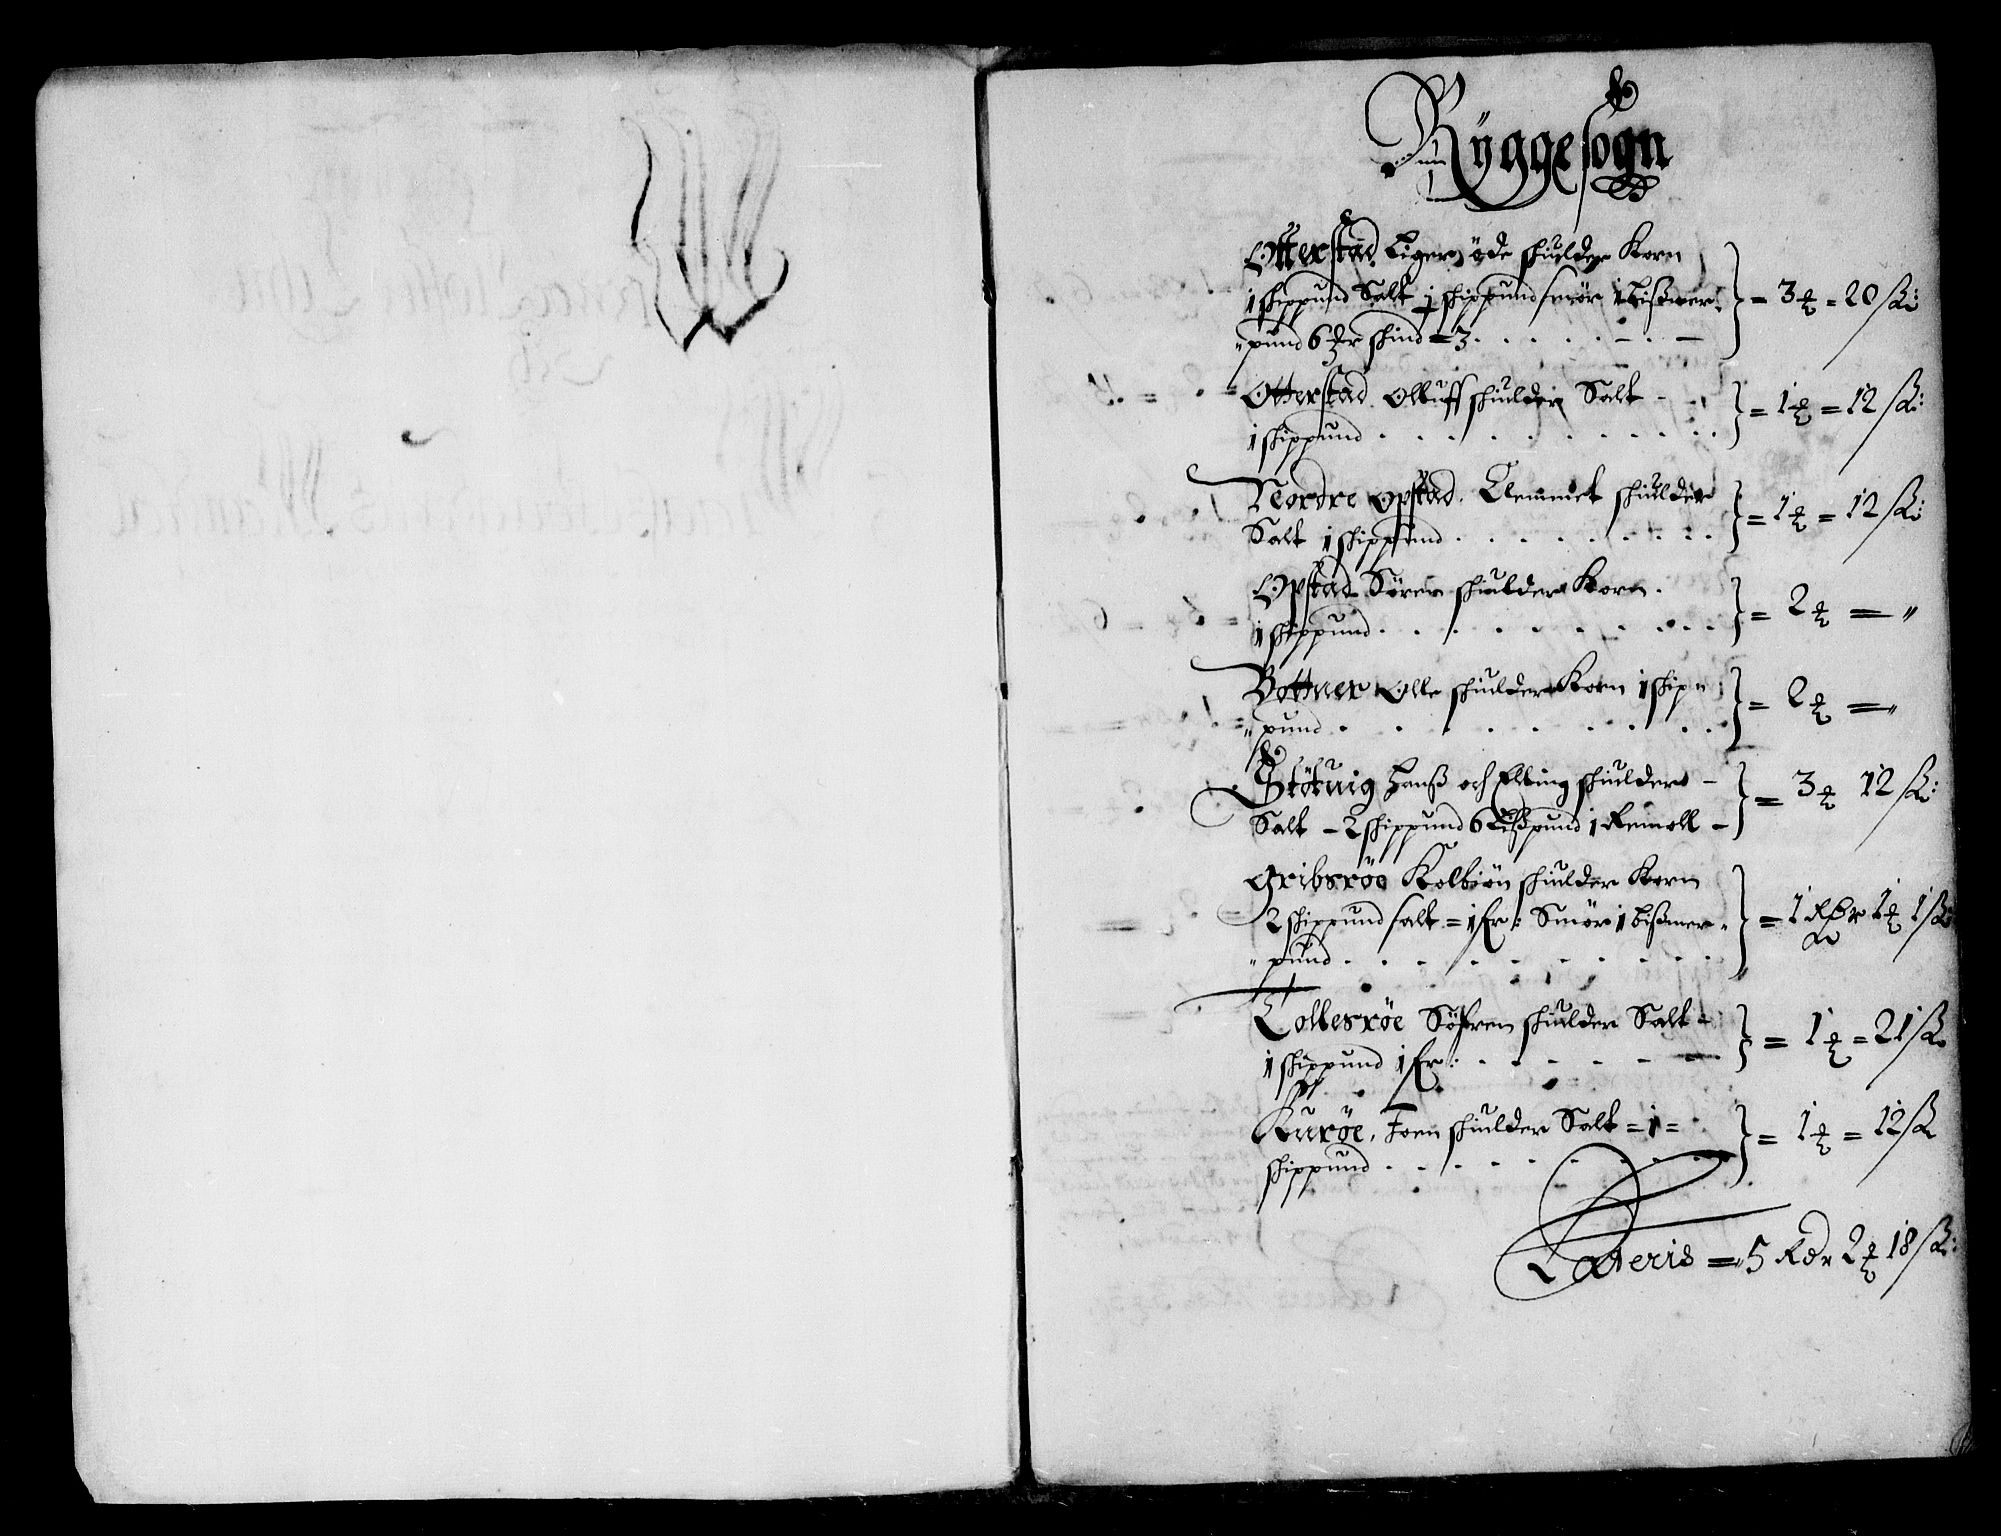 Ryggesogn
Otterstad Ligger øde skulder Korn
1 skippund Salt 1 skippund smør 1 bißmer
pund 6 skind = 3
= 3 = 20 ß:
Otterstad Olluff skulder Salt
1 skippund
= 1 = 12 ß:
Nordre Opstad. Clemmet skulder
Salt 1 skippund
= 1 = 12 ß:
Opstad Sören skulder Korn.
1 skippund
= 2 = "
Bottner Olle skulder Korn 1 skip
" pund
= 2 = "
Støtuig Hanß och Elling skulder
Salt - 2 skippund 6 Lißpund 1 Remoll -
= 3 12 ß:
Gribsröe Kolbiön skulder Korn
2 skippund salt = 1 fr: Smör 1 bißmer
" pund
= 1 Rdr 1 1 ß:
Tollesröe Söfren skulder Salt -
1 skippund 1 fr:
= 1 = 21 ß
Kuröe, Joen skulder Salt = 1 =
skippund
= 1 = 12 ß
Lateris = 5 Rdr 2 18 ß: